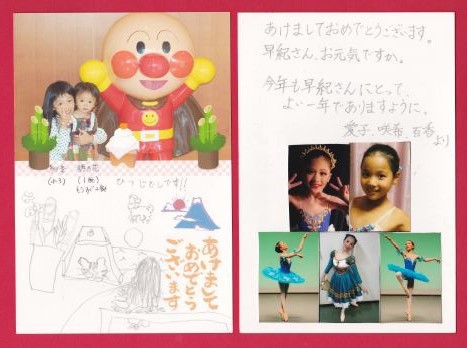 (小3)
(1歳)
ひつじどしです!!
あけまして
おめでとう
ございます
あけましておめでとうございます。
早紀さん、お元気ですか。
今年も早紀さんにとって、
よい一年でありますように。
愛子、咲希、百香
より